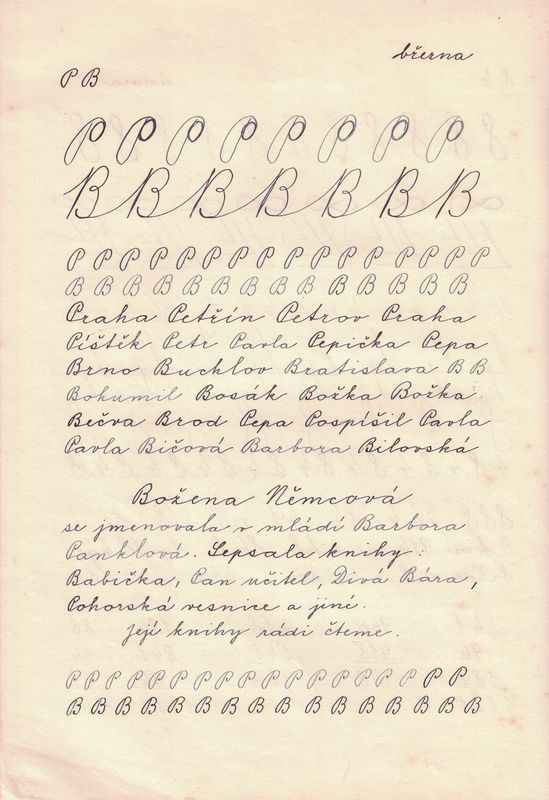 března
P B
P P P P P P P P
B B B B B B B
P P P P P P P P P P P P P P P P
B B B B B B B B B B B B B
Praha Petřín Petrov Praha
Píštěk Petr Pavla Pepička Pepa
Brno Buchlov Bratislava B B
Bohumil Bosák Božka Božka
Bečva Brod Pepa Pospíšil Pavla
Pavla Bičová Barbora Bilovská
Božena Němcová
se jmenovala v mládí Barbora
Panklová. Sepsala knihy:
Babička, Pan učitel, Divá Bára,
Pohorská vesnice a jiné.
Její knihy rádi čteme.
P P P P P P P P P P P P P P P P
B B B B B B B B B B B B B B B B